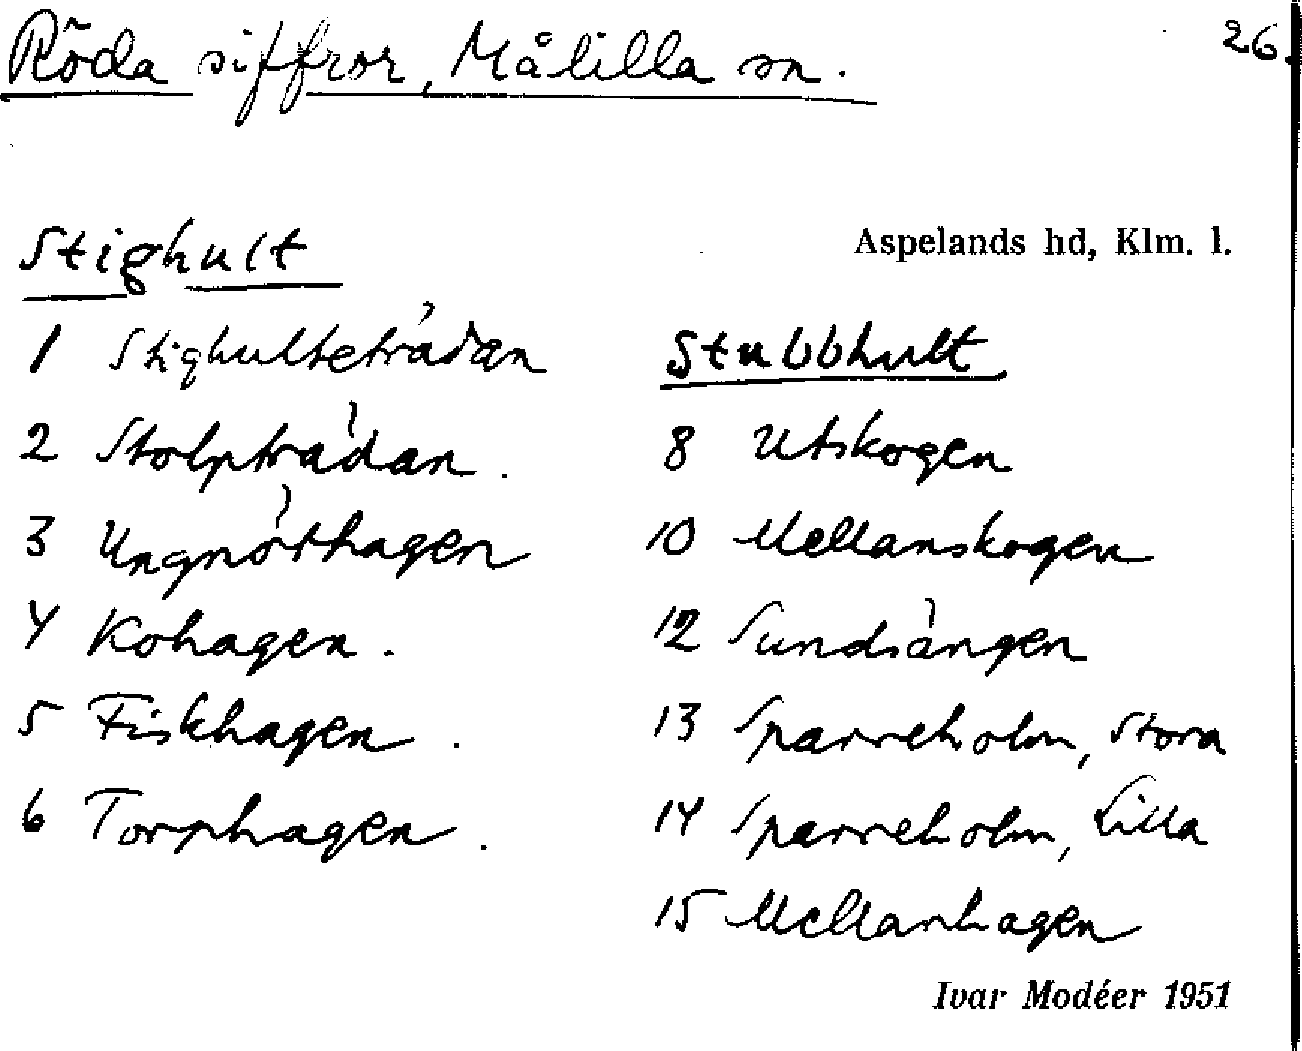 Röda siffror, Målilla sn.
26.
Aspelands hd, Klm. l.
Stighult
1 Stighulteträdan
2 Stolpträdan.
3 Ungnöthagen
4 Kohagen.
5 Fiskhagen.
6 Torphagen.
Stubbhult
8 Utskogen
10 Mellanskogen
12 Sundsängen
13 Sparreholm, Stora
14 Sparreholm, Lilla
15 Mellanhagen
Ivar Modéer 1951